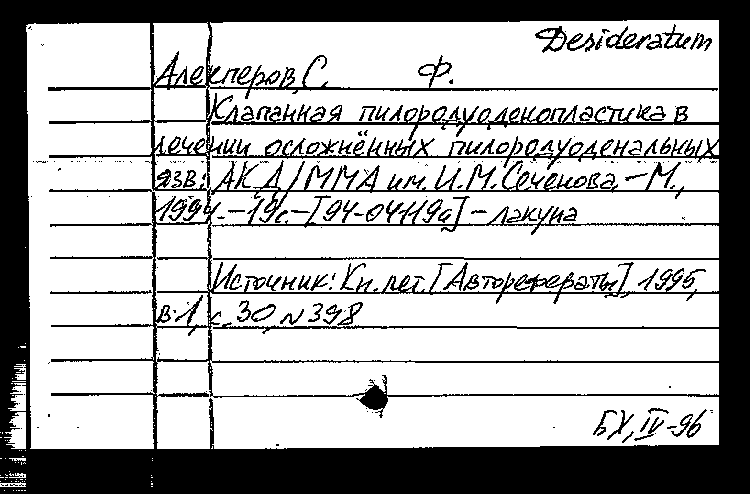 Desideratum
Алекперов, С. Ф.
Клапанная пилородуоденопластика в
лечении осложнённых пилородуоденальных
язв: АКД / ММА им. И.М. Сеченова, – М.,
1994. – 19с. – [94-04119а] – лакуна
Источник: Кн. лет. [Авторефераты], 1995,
в. 1, с. 30, N 398
БХ, IV-96